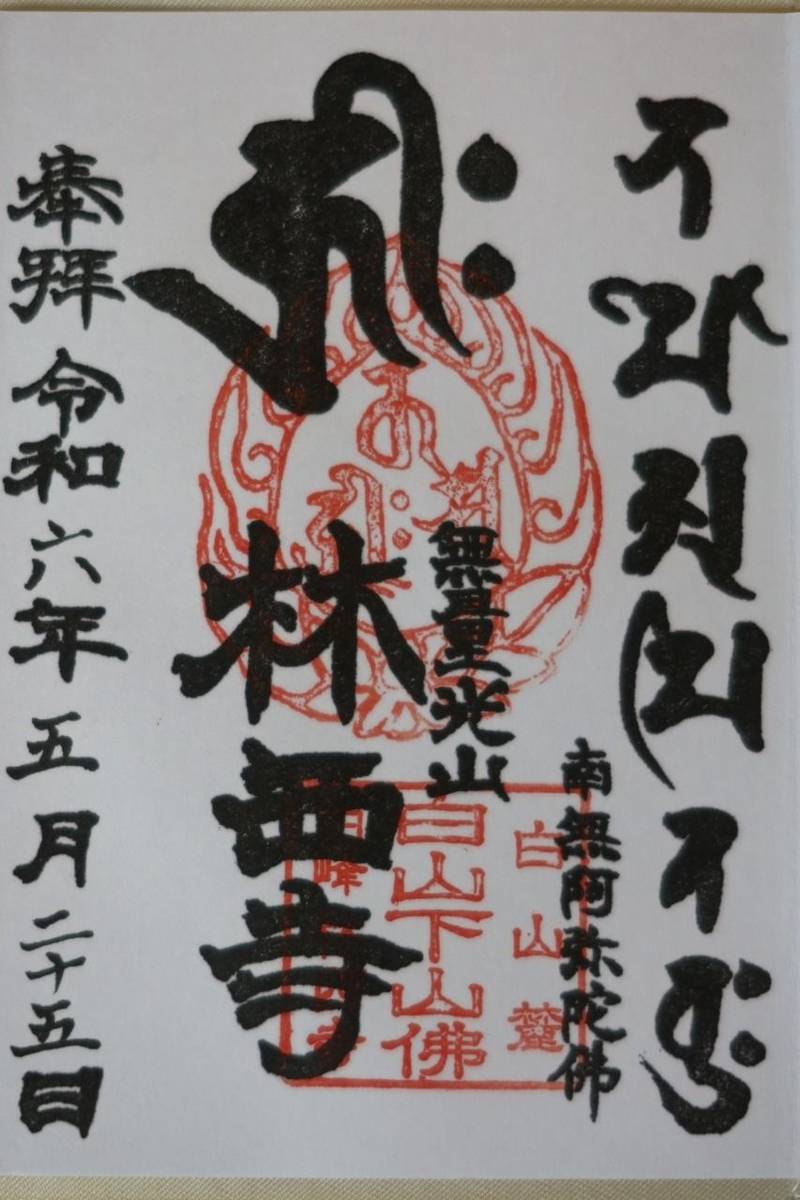 南無阿弥陀佛
無量光山
𑖮𑖿𑖨𑖱𑖾
林西寺
奉拝 令和六年五月二十五日
白山麓
白山下山佛
白峰 寺